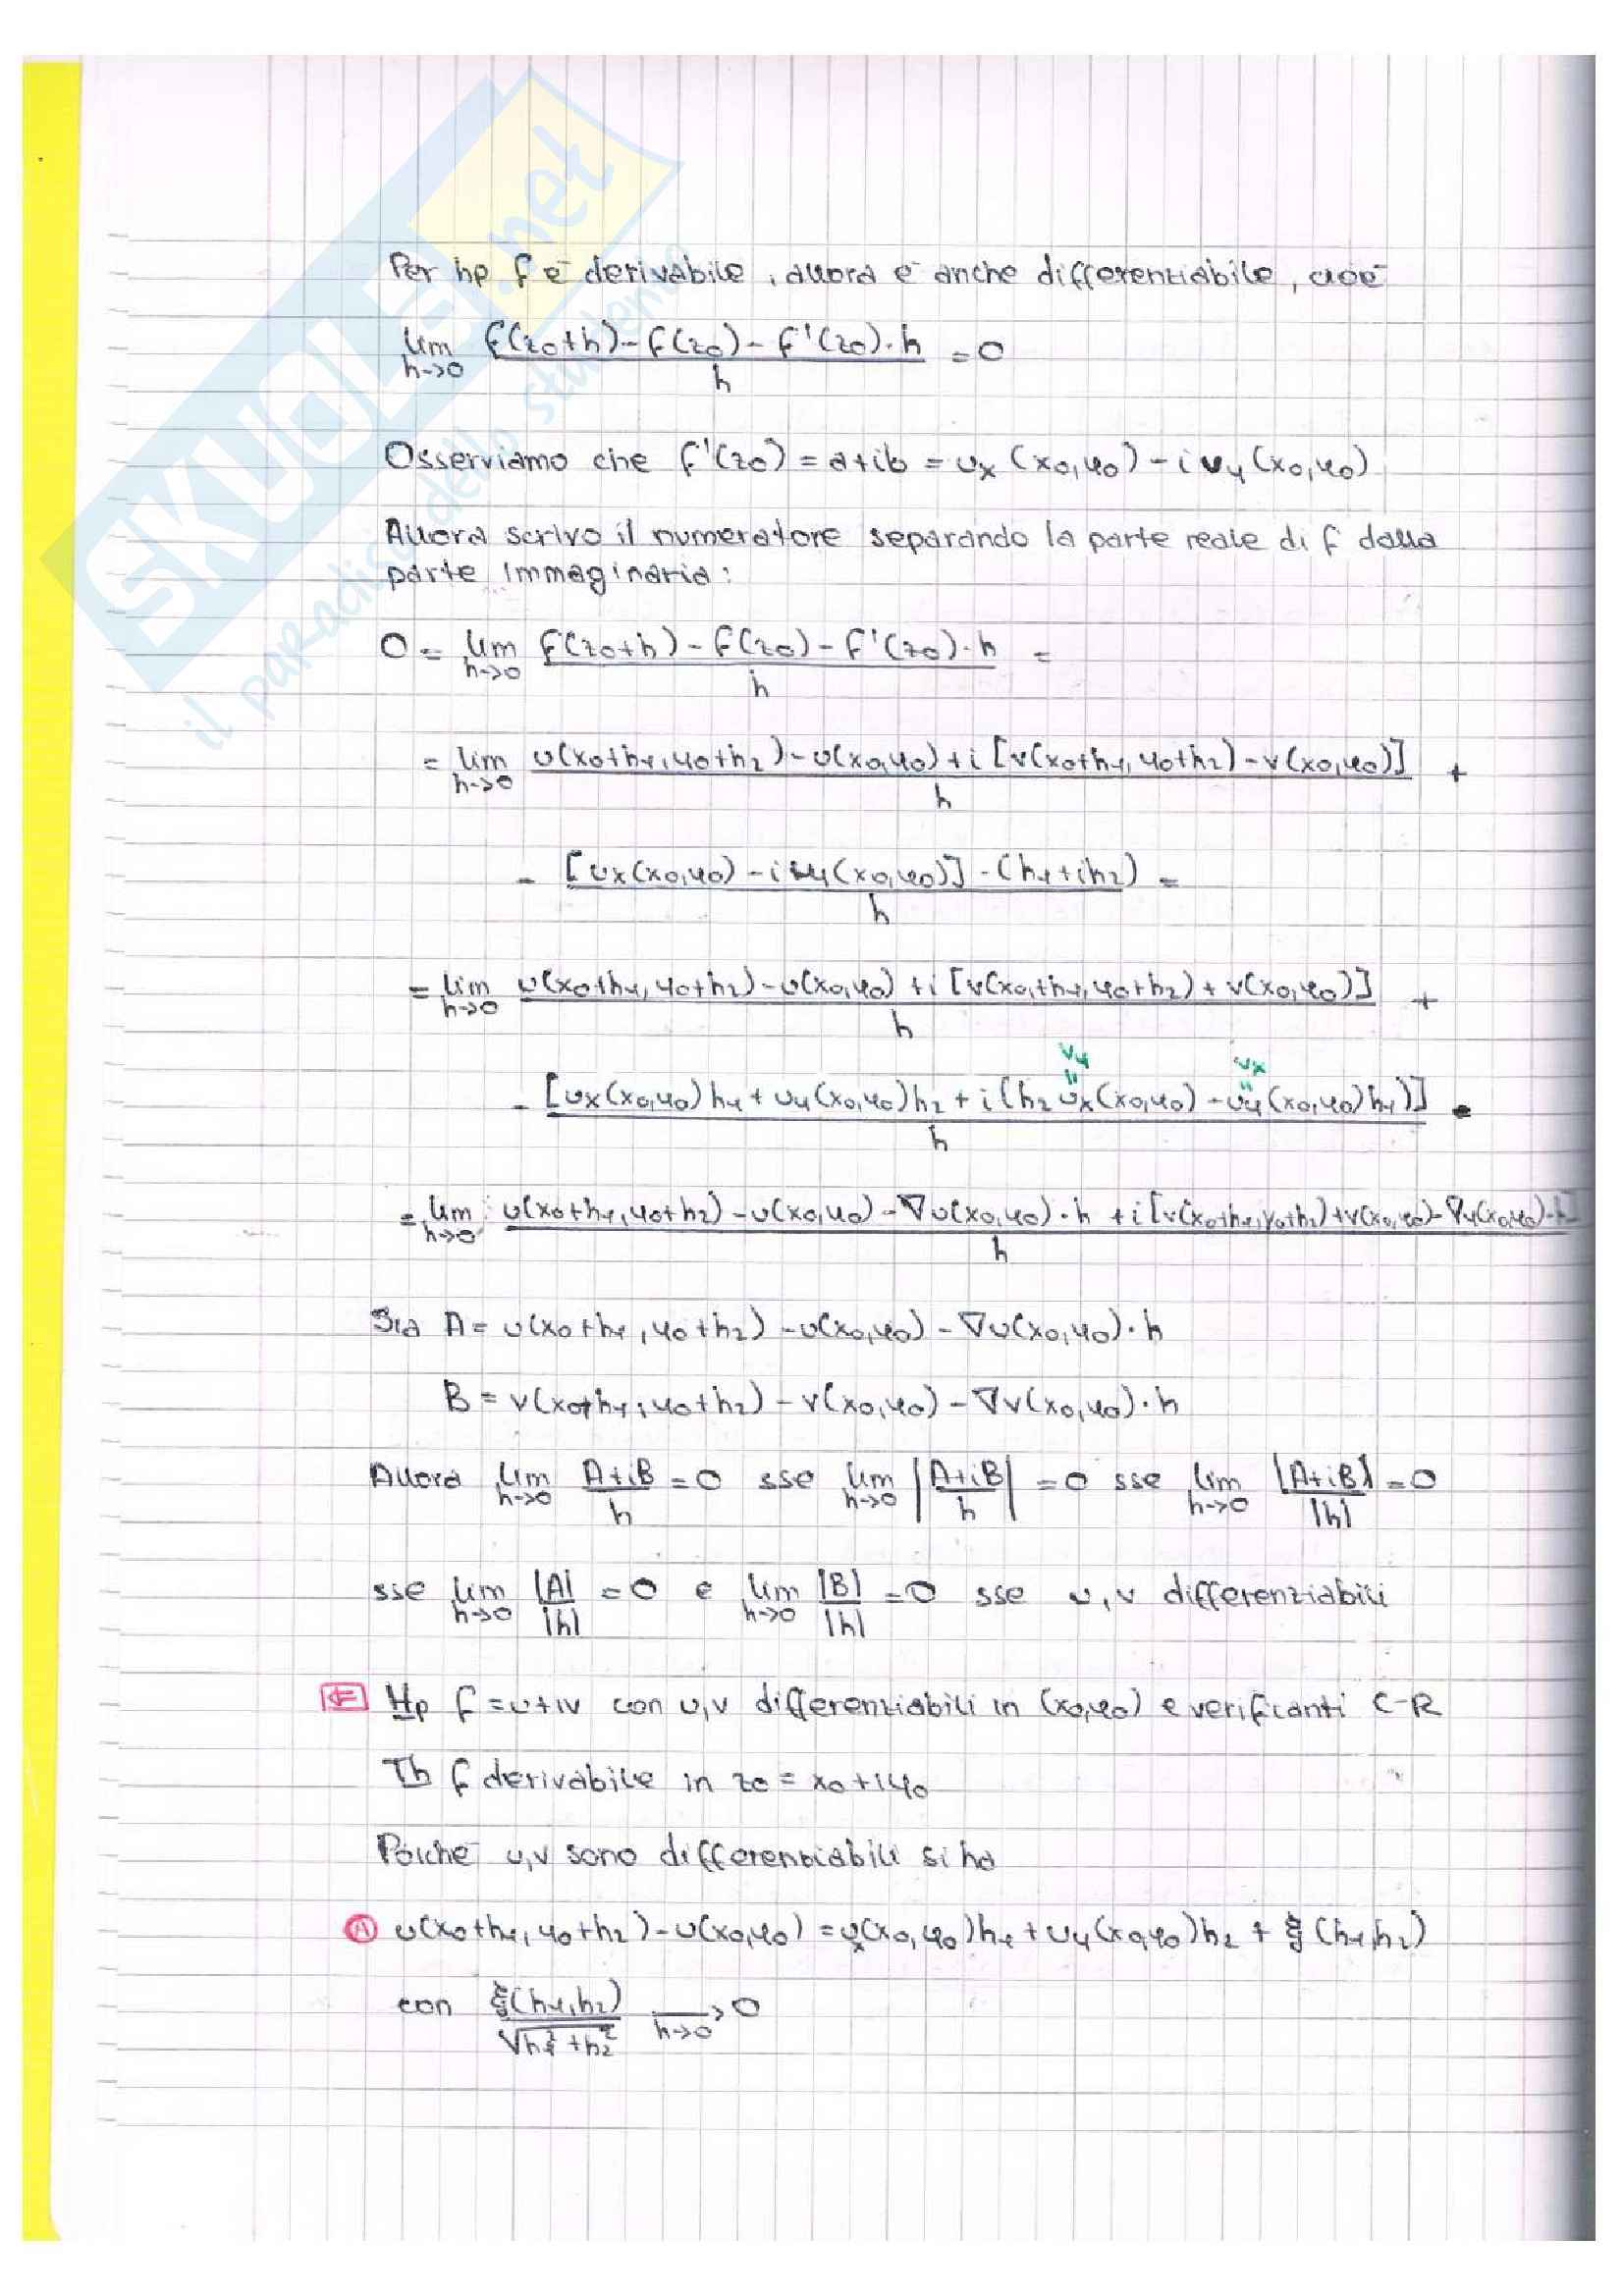 SKUOLA.net
il paradiso dello studente
Per hp f è derivabile, allora è anche differenziabile, cioè
lim h->0 f(z0+h)-f(z0)-f'(z0)·h / h = 0
Osserviamo che f'(z0) = a+ib = ux(x0,y0) - i uy(x0,y0)
Allora scrivo il numeratore separando la parte reale di f dalla
parte immaginaria:
0 = lim h->0 f(z0+h)-f(z0)-f'(z0)·h / h =
= lim h->0 u(x0+h1,y0+h2)-u(x0,y0)+i[v(x0+h1,y0+h2)-v(x0,y0)] / h +
- [ux(x0,y0)-iuy(x0,y0)]·(h1+ih2) / h =
= lim h->0 u(x0+h1,y0+h2)-u(x0,y0)+i[v(x0+h1,y0+h2)+v(x0,y0)] / h +
vy vx
- [ux(x0,y0)h1+uy(x0,y0)h2+i(h2 ux(x0,y0)-uy(x0,y0)h1)] / h =
= lim h->0 u(x0+h1,y0+h2)-u(x0,y0)-∇u(x0,y0)·h +i[v(x0+h1,y0+h2)+v(x0,y0)-∇v(x0,y0)·h] / h
Sia A = u(x0+h1,y0+h2)-u(x0,y0)-∇u(x0,y0)·h
B = v(x0+h1,y0+h2)-v(x0,y0)-∇v(x0,y0)·h
Allora lim h->0 A+iB / h = 0 sse lim h->0 |A+iB / h| = 0 sse lim h->0 |A+iB| / |h| = 0
sse lim h->0 |A| / |h| = 0 e lim h->0 |B| / |h| = 0 sse u,v differenziabili
⇐ Hp f = u+iv con u,v differenziabili in (x0,y0) e verificanti C-R
Th f derivabile in z0 = x0+iy0
Poiché u,v sono differenziabili si ha
A u(x0+h1,y0+h2)-u(x0,y0) = ux(x0,y0)h1+uy(x0,y0)h2 + ξ(h1,h2)
con ξ(h1,h2) / √h1²+h2² → h->0 0